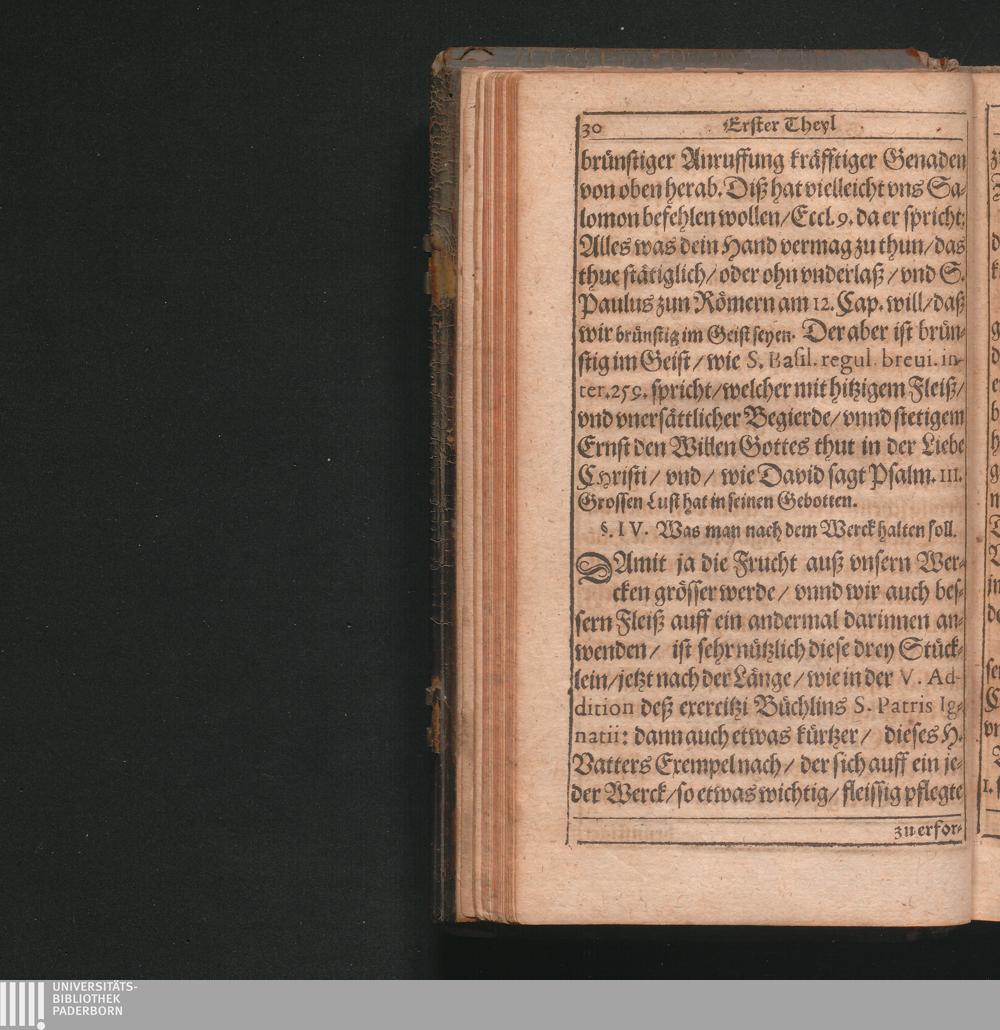 30 Erster Theyl
brünstiger Anruffung kräfftiger Genaden
von oben herab. Diß hat vielleicht vns Sa-
lomon befehlen wollen/Eccl. 9. da er spricht:
Alles was dein Hand vermag zu thun/das
thue stätiglich/oder ohn vnderlaß/vnd S.
Paulus zun Römern am 12. Cap. will/daß
wir brünstig im Geist seyen. Der aber ist brün-
stig im Geist/wie S. Basil. regul. breui. in-
ter. 259. spricht/welcher mit hitzigem Fleiß/
vnd vnersättlicher Begierde/vnnd stetigem
Ernst den Willen Gottes thut in der Liebe
Christi/vnd/wie David sagt Psalm. III.
Grossen Lust hat in seinen Gebotten.
§. IV. Was man nach dem Werck halten soll.
DAmit ja die Frucht auß vnsern Wer-
cken grösser werde/vnnd wir auch bes-
sern Fleiß auff ein andermal darinnen an-
wenden/ist sehr nützlich diese drey Stück-
lein/jetzt nach der Länge/wie in der V. Ad-
dition deß exercitzi Büchlins S. Patris Ig-
natii: dann auch etwas kürtzer/dieses H.
Vatters Exempel nach/der sich auff ein je-
der Werck/so etwas wichtig/fleissig pflegte
zu erfor-
UNIVERSITÄTS-
BIBLIOTHEK
PADERBORN